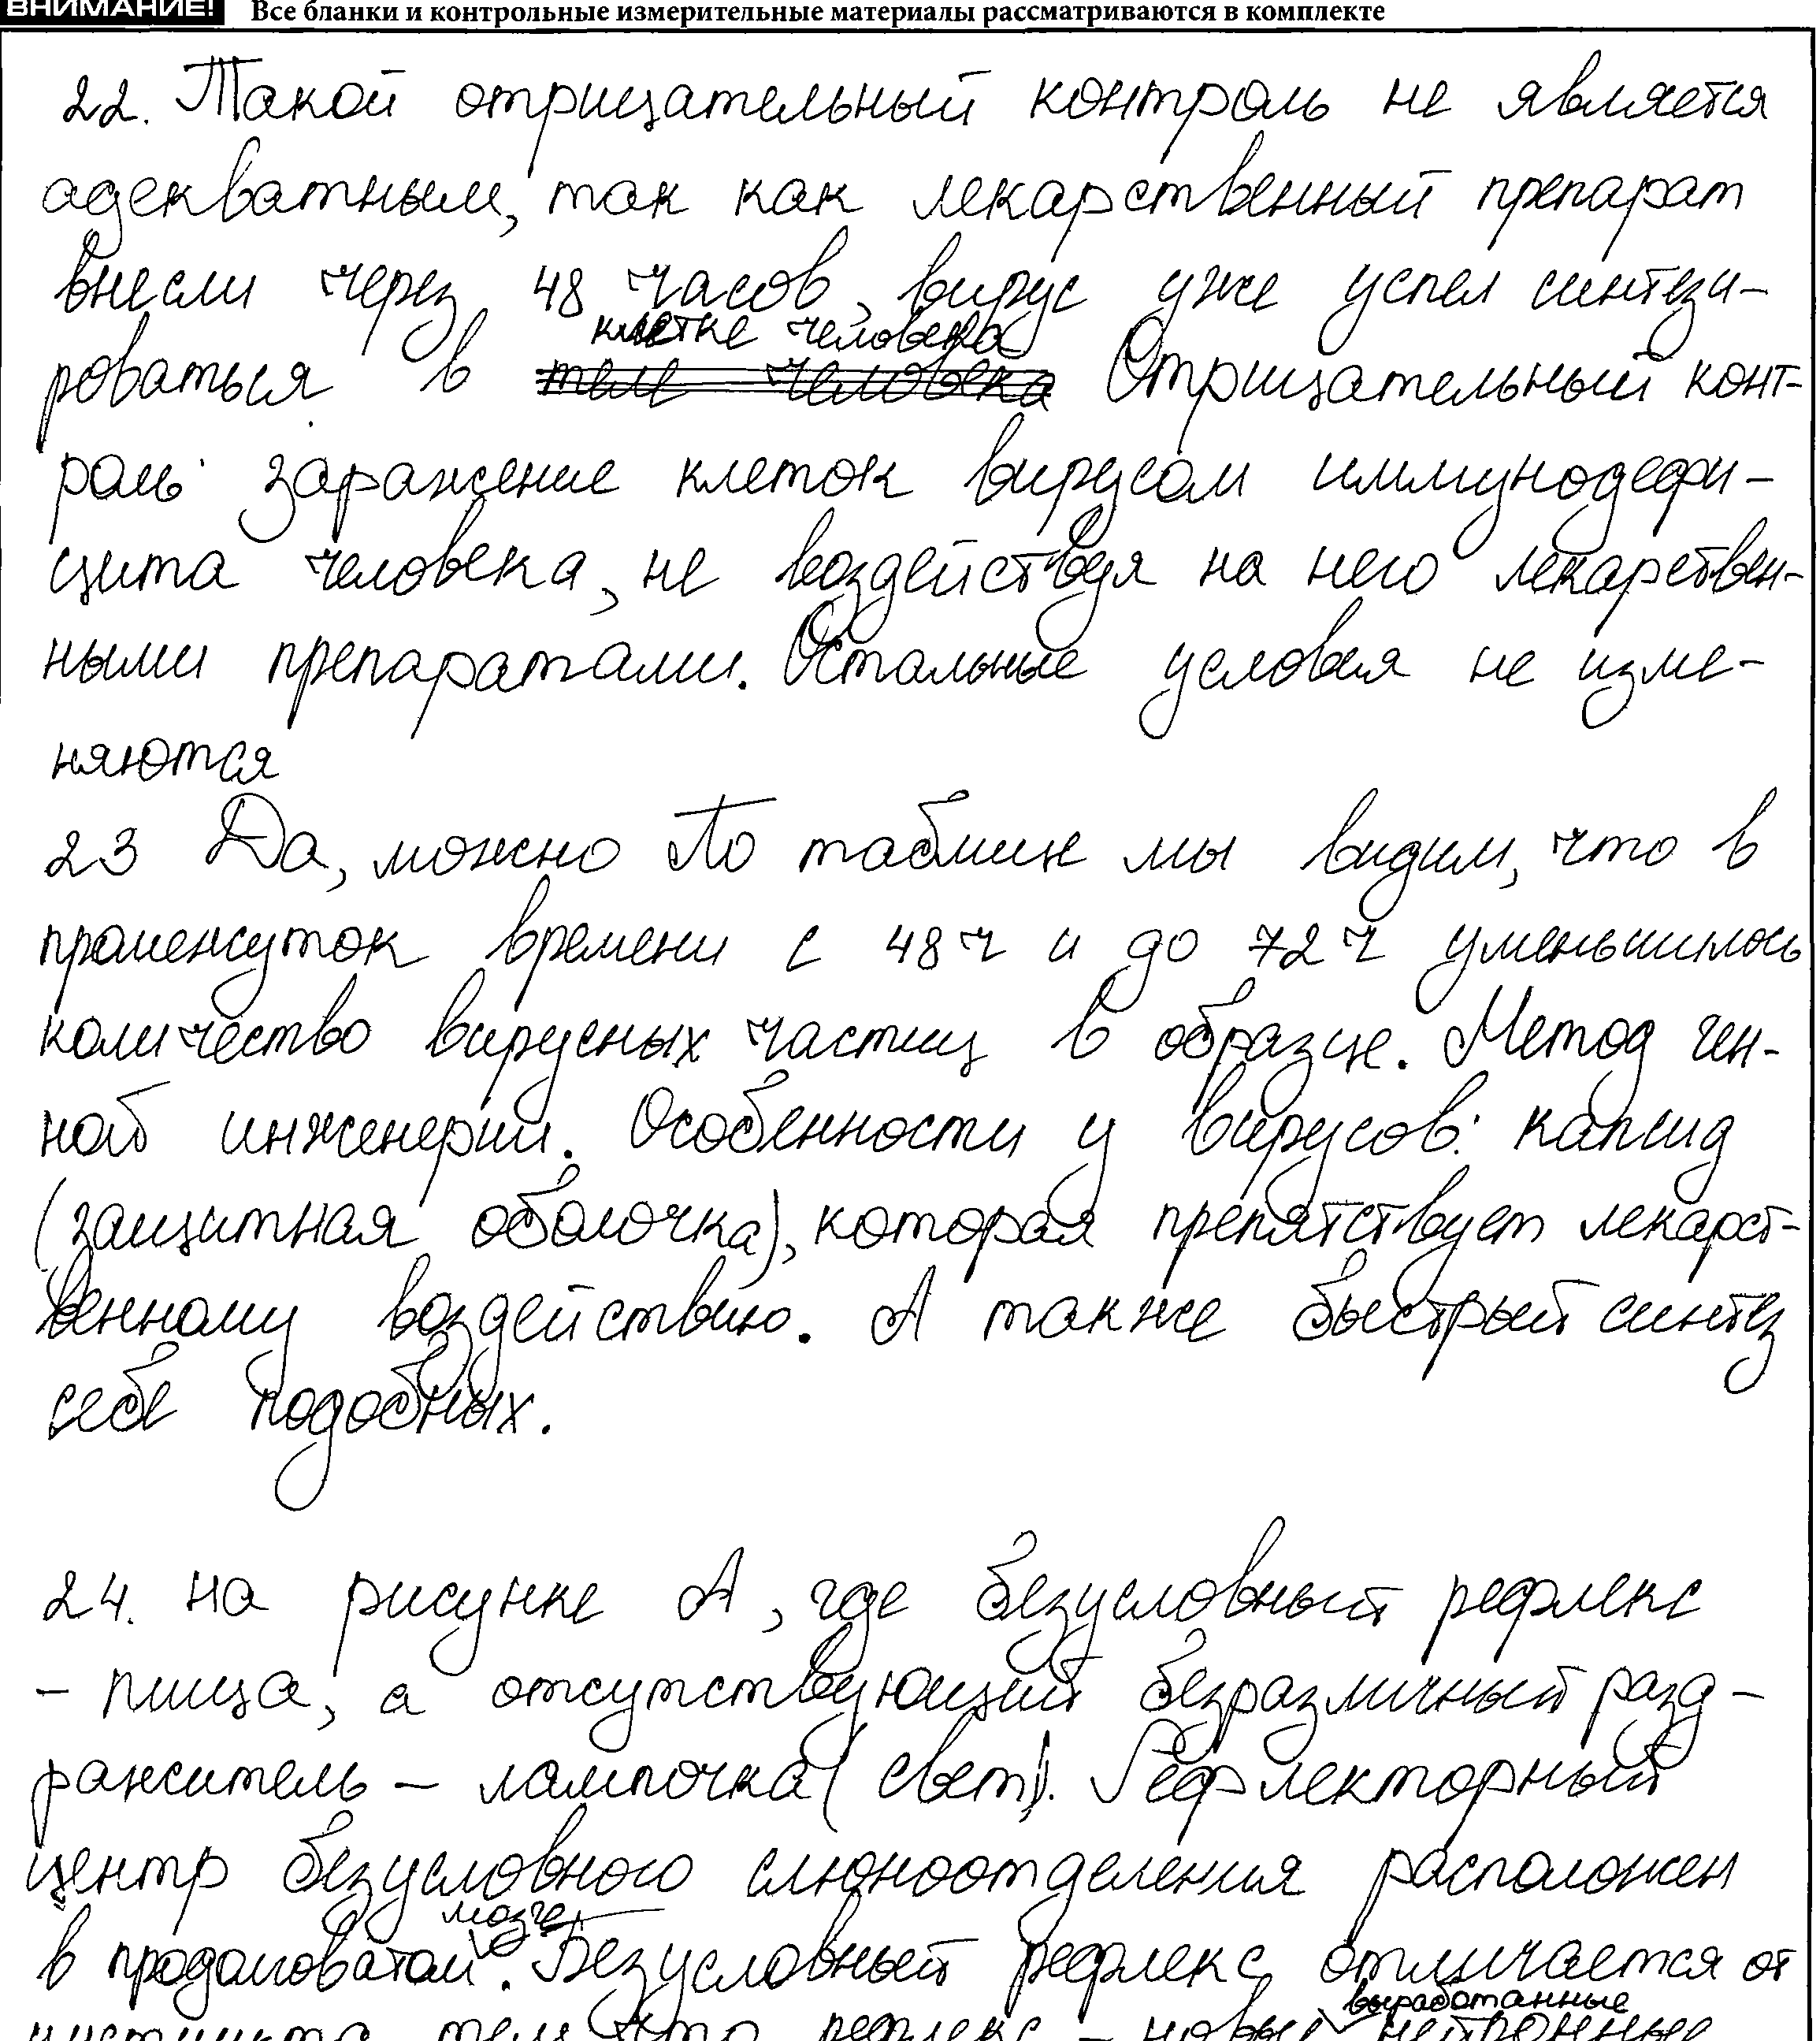 ВНИМАНИЕ! Все бланки и контрольные измерительные материалы рассматриваются в комплекте
22. Такой отрицательный контроль не является
адекватным, так как лекарственный препарат
внесли через 48 часов, вирус уже успел синтези-
клетке человека
роваться в теле человека Отрицательный конт-
роль: заражение клеток вирусом иммунодефи-
цита человека, не воздействуя на него лекарствен-
ными препаратами. Остальные условия не изме-
няются
23 Да, можно По таблице мы видим, что в
промежуток времени с 48ч и до 72ч уменьшилось
количество вирусных частиц в образце. Метод ген-
ной инженерии. Особенности у вирусов: капсид
(защитная оболочка), которая препятствует лекарст-
венному воздействию. А также быстрый синтез
себе подобных.
24. На рисунке А, где безусловный рефлекс
- пища, а отсутствующий безразличный разд-
ражитель - лампочка (свет). Рефлекторный
центр безусловного слюноотделения расположен
мозге
в продолговатом. Безусловный рефлекс отличается от
выработанные
инстинкта тем, что рефлекс - новые нейронные